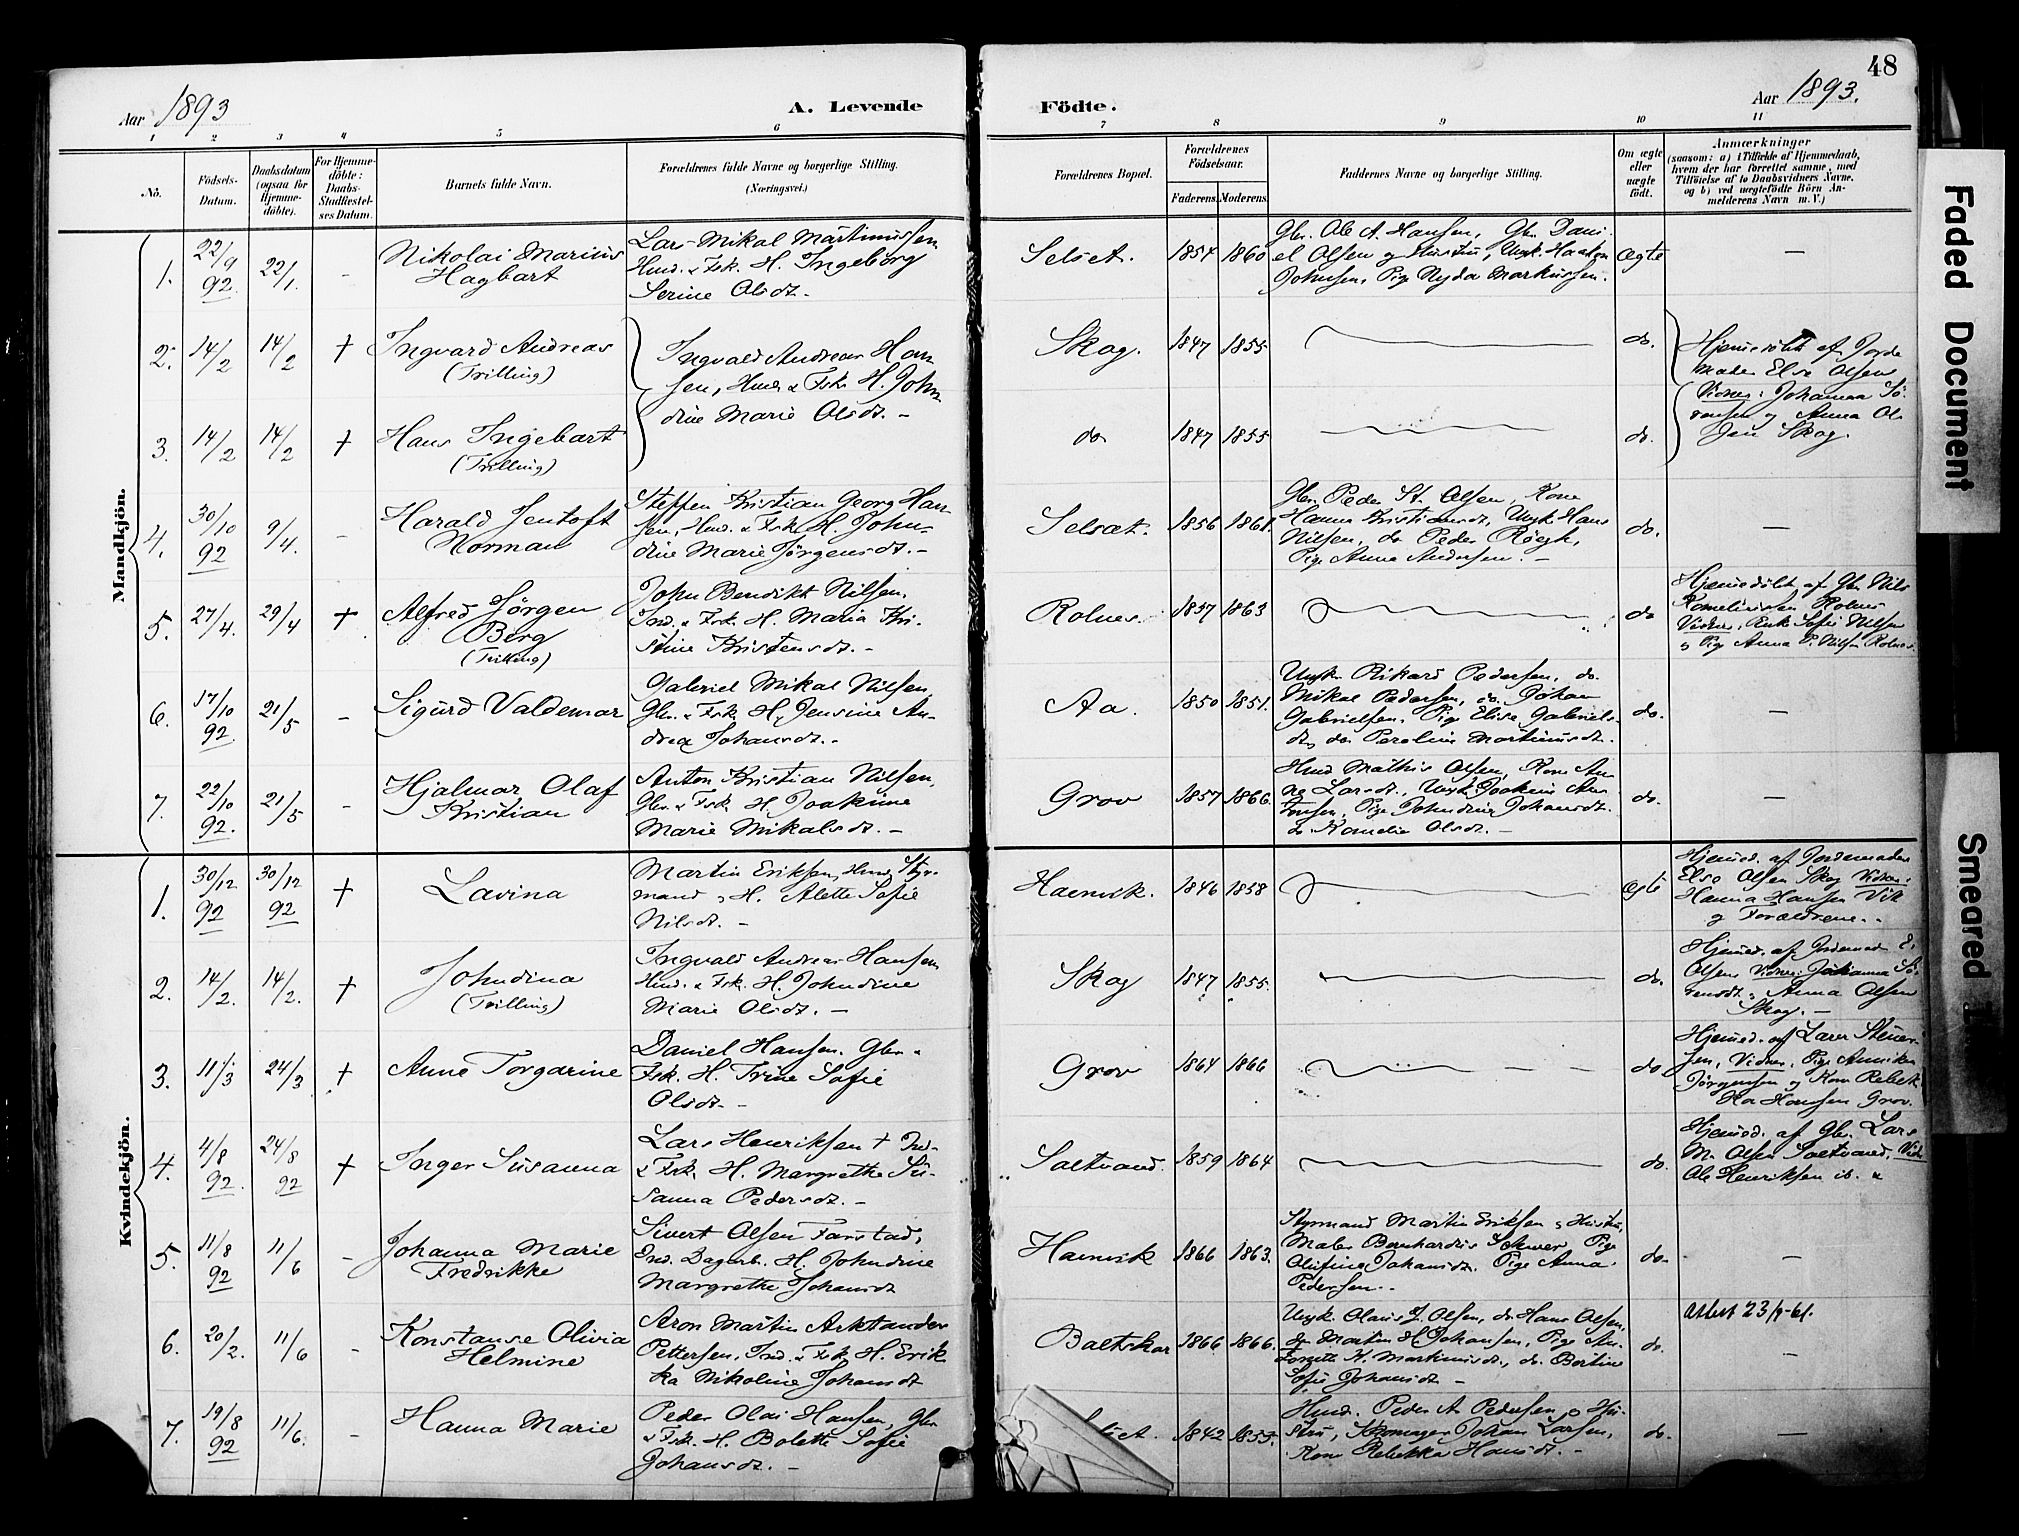 48
Aar 1893
A. Levende
Födte.
Aar 1893.
1 2 3 4 5 6 7 8 9 10 11
No.
Födsels-
Datum.
Daabsdatum
(ogsaa for
Hjemme-
döbte).
For Hjemme-
döbte:
Daabs-
Stadfæstel-
ses Datum.
Barnets fulde Navn.
Forældrenes fulde Navne og borgerlige Stilling.
(Næringsvei.)
Forældrenes Bopæl.
Forældrenes
Födselsaar.
Faderens. Moderens.
Faddernes Navne og borgerlige Stilling.
Om ægte
eller
uægte
født.
Anmærkninger
(saasom: a) i Tilfælde af Hjemmedaab,
hvem der har forrettet samme, med
Tilföielse af to Daabsvidners Navne,
og b) ved uægtefödte Börn An-
melderens Navn m. V.)
Mandkjön.
1. 22/9 92 22/1. - Nikolai Marius
Hagbart
Lars Mikal Martinussen
Hmd. & Fsk. H. Ingeborg
Serine Olsdt. -
Selset. 1854 1860
Gbr. Ole A. Hansen, Gbr. Dani-
el Olsen og Hustru, Ungk. Haakon
Johnsen, Pige Nyda Markussen.
ægte —
2. 14/2 14/2 † Ingvard Andreas
(Trilling)
Ingvald Andreas Han-
sen, Hmd. & Fsk. H. John-
dine Marie Olsdt. -
Skog. 1847 1855 do.
Hjemmedöbt af Jorde
moder Else Olsen
Vidner: Johanna Sö-
rensen og Anna Ol-
sen Skog.
3. 14/2 14/2 † Hans Ingebart
(Trilling)
do 1847 1855 do.
4. 30/10 92 9/4. - Harald Jentoft
Norman
Steffen Kristian Georg Han-
sen, Hmd. & Fsk. H. John-
dine Marie Jörgensdt. -
Selsæt. 1856 1861.
Gbr. Peder St. Olsen, Kone
Hanna Kristiansdt, Ungk. Hans
Nilsen, do Peder Röegh,
Pige Anna Andersen. -
do. —
5. 27/4. 29/4 † Alfred Jörgen
Berg
(Trilling)
John Benedikt Nilsen,
Ind. & Fsk. H. Maria Kri-
stine Kristensdt. -
Rolnes. 1857 1863 do
Hjemmedöbt af Gbr Nils
Korneliussen Rolnes
Vidner, Enke Sofie Nilsen
og Pige Anna P. Nilsen Rolnes.
6. 17/10 92. 21/5 - Sigurd Valdemar
Gabriel Mikal Nilsen,
Gbr. & Fsk. H. Jensine An-
drea Johansdt. -
Aa. 1850 1851.
Ungk. Rikard Pedersen, do.
Mikal Pedersen, do. Johan
Gabrielsen, Pige Elise Gabriels-
dt, do Peroline Martinusdt.
do. —
7. 22/10 92. 21/5 - Hjalmar Olaf
Kristian
Anton Kristian Nilsen,
Gbr. & Fsk. H. Joakime
Marie Mikalsdt. -
Grov 1857 1866.
Hmd Mathis Olsen, Kone An-
ne Larsdt., Ungk. Joakim An-
tonsen, Pige Johndine Johansdt.
do Kornelie Olsdt. -
do. —
Kvindekjön.
1. 30/12 92 30/12 92 † Lavina
Martin Eriksen, Hmd. Styr-
mand, H. Alette Sofie
Nilsdt. -
Havnvik. 1846 1858 ægte
Hjemmed. af Jordemoder
Else Olsen Skog Vidner:
Hanna Hansen Vik
og Forældrene. -
2. 14/2. 14/2. † Johndina
(Trilling)
Ingvald Andreas Hansen
Hmd. & Fsk. H. Johndine
Marie Olsdt. -
Skog 1847 1855. do.
Hjemmed. af Jordemod. E.
Olsen Vidner: Johanna Sö-
rensdt, Anna Olsen
Skog. -
3. 11/3 24/3 † Anne Torgarine
Daniel Hansen. Gbr. &
Fsk. H. Trine Sofie
Olsdt. -
Grov 1864 1866 do
Hjemmed. af Lærer Steiner-
sen, Vidner, Pige Anniken
Jörgensen og Kone Rebek-
ka Hansen Grov.
4. 4/8 92. 24/8 92 † Inger Susanna
Lars Henriksen † Ind.
& Fsk. H. Margrethe Su-
sanna Pedersdt. -
Saltvand. 1859 1864 do.
Hjemmed. af Gbr. Lars
M. Olsen Saltvand, Vid.
Ole Henriksen ib. &
5. 11/8 92 11/6 - Johanna Marie
Fredrikke
Sivert Olsen Farstad,
Ind. Dagarb. H. Johndine
Margrethe Johansdt
Havnvik 1866 1863.
Styrmand Martin Eriksen & Hustru,
Maler Bernhardus Pige
Olufine Johansdt. Pige Anna
Pedersen. -
do- —
6. 20/2. 11/6 - Konstanse Olivia
Helmine
Aron Martin Arktander
Pettersen, Ind. & Fsk. H. Erik-
ka Nikoline Johansdt
Baltskar 1866 1866.
Ungk. Olaus J. Olsen, do Hans Olsen,
do Martin H. Johansen, Pige An-
tonette K. Martinusdt., do. Bertine
Sofie Johansdt -
do. —
Attest 23/9-61.
7. 19/8 92 11/6. - Hanna Marie
Peder Olai Hansen, Gbr
& Fsk. H. Bolette Sofie
Johansdt. -
1842 1855.
Hmd. Peder A. Pedersen & Hu-
stru, Skomager Johan Larsen,
Kone Rebekka Hansdt. -
do. —
Faded Document
Smeared